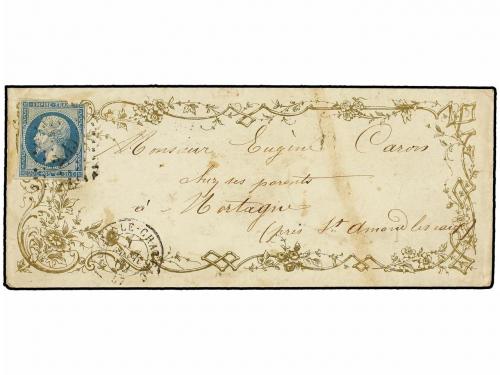 EMPIRE FRANC
Monsieur Eugène Caron
chez ses parents
à Mortagne
(près St Amand les eaux)
LE-CH